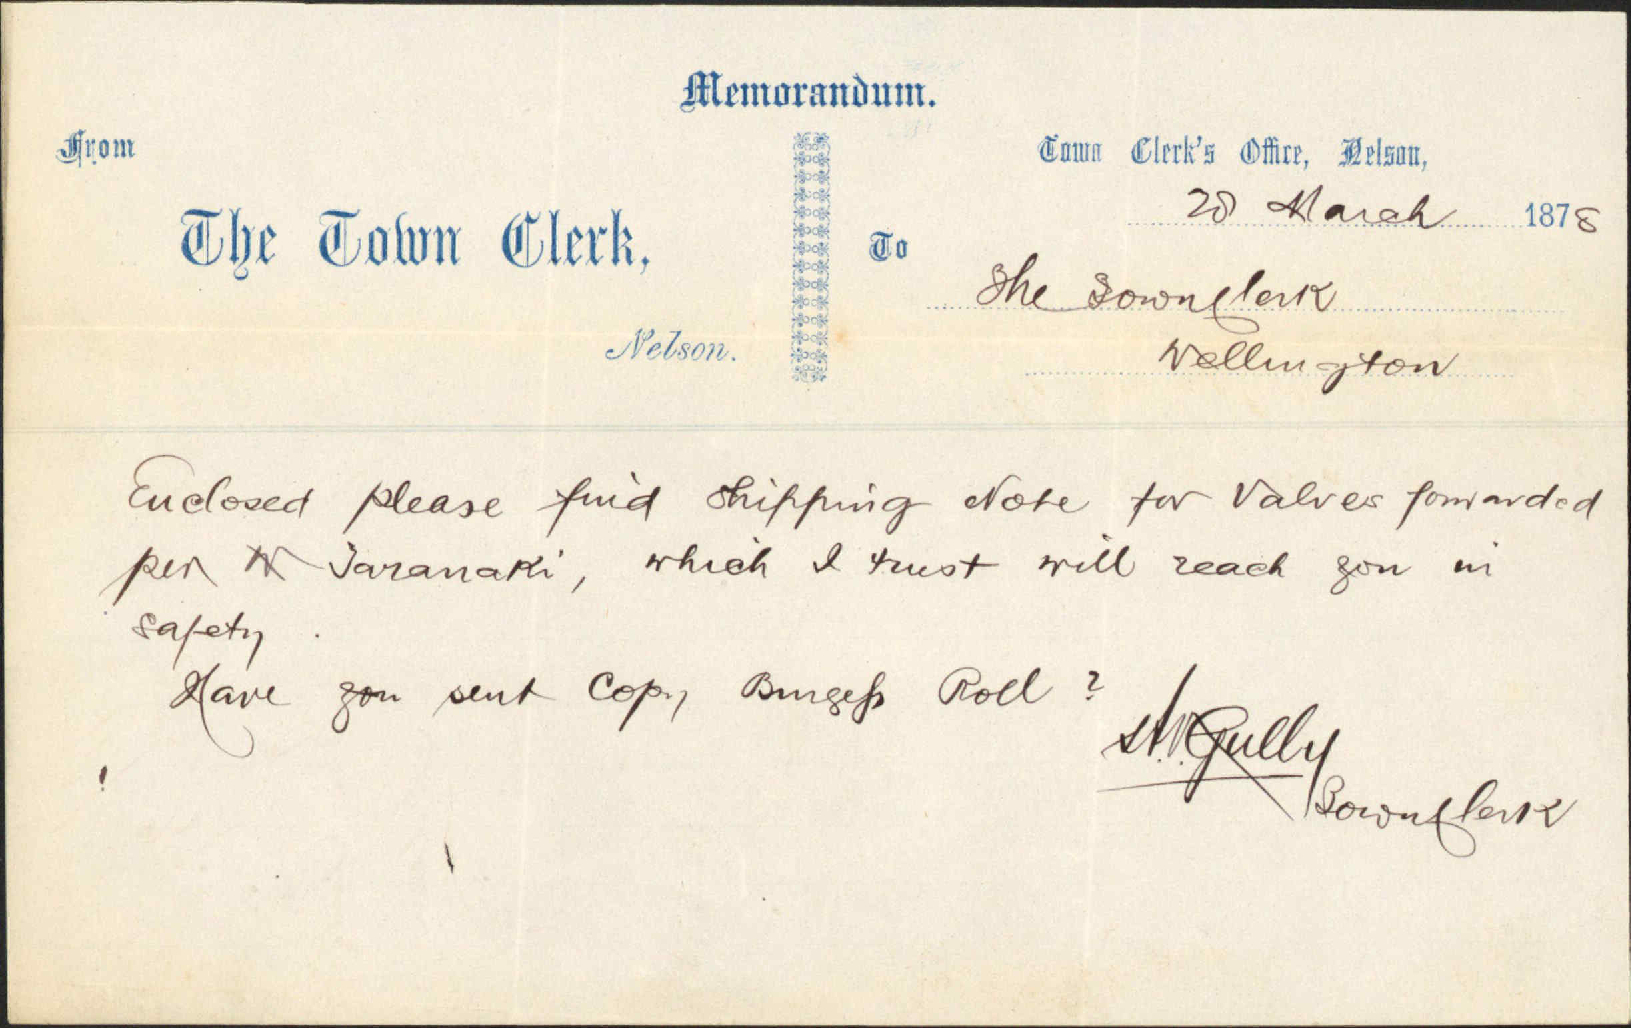 Memorandum.
From
Town Clerk's Office, Nelson,
28 March 1878
The Town Clerk,
To
The Town Clerk
Nelson.
Wellington
Enclosed please find Shipping Note for Valves forwarded
per Taranaki, which I trust will reach you in
safety.
Have you sent Copy Burgess Roll ?
Gully
Town Clerk